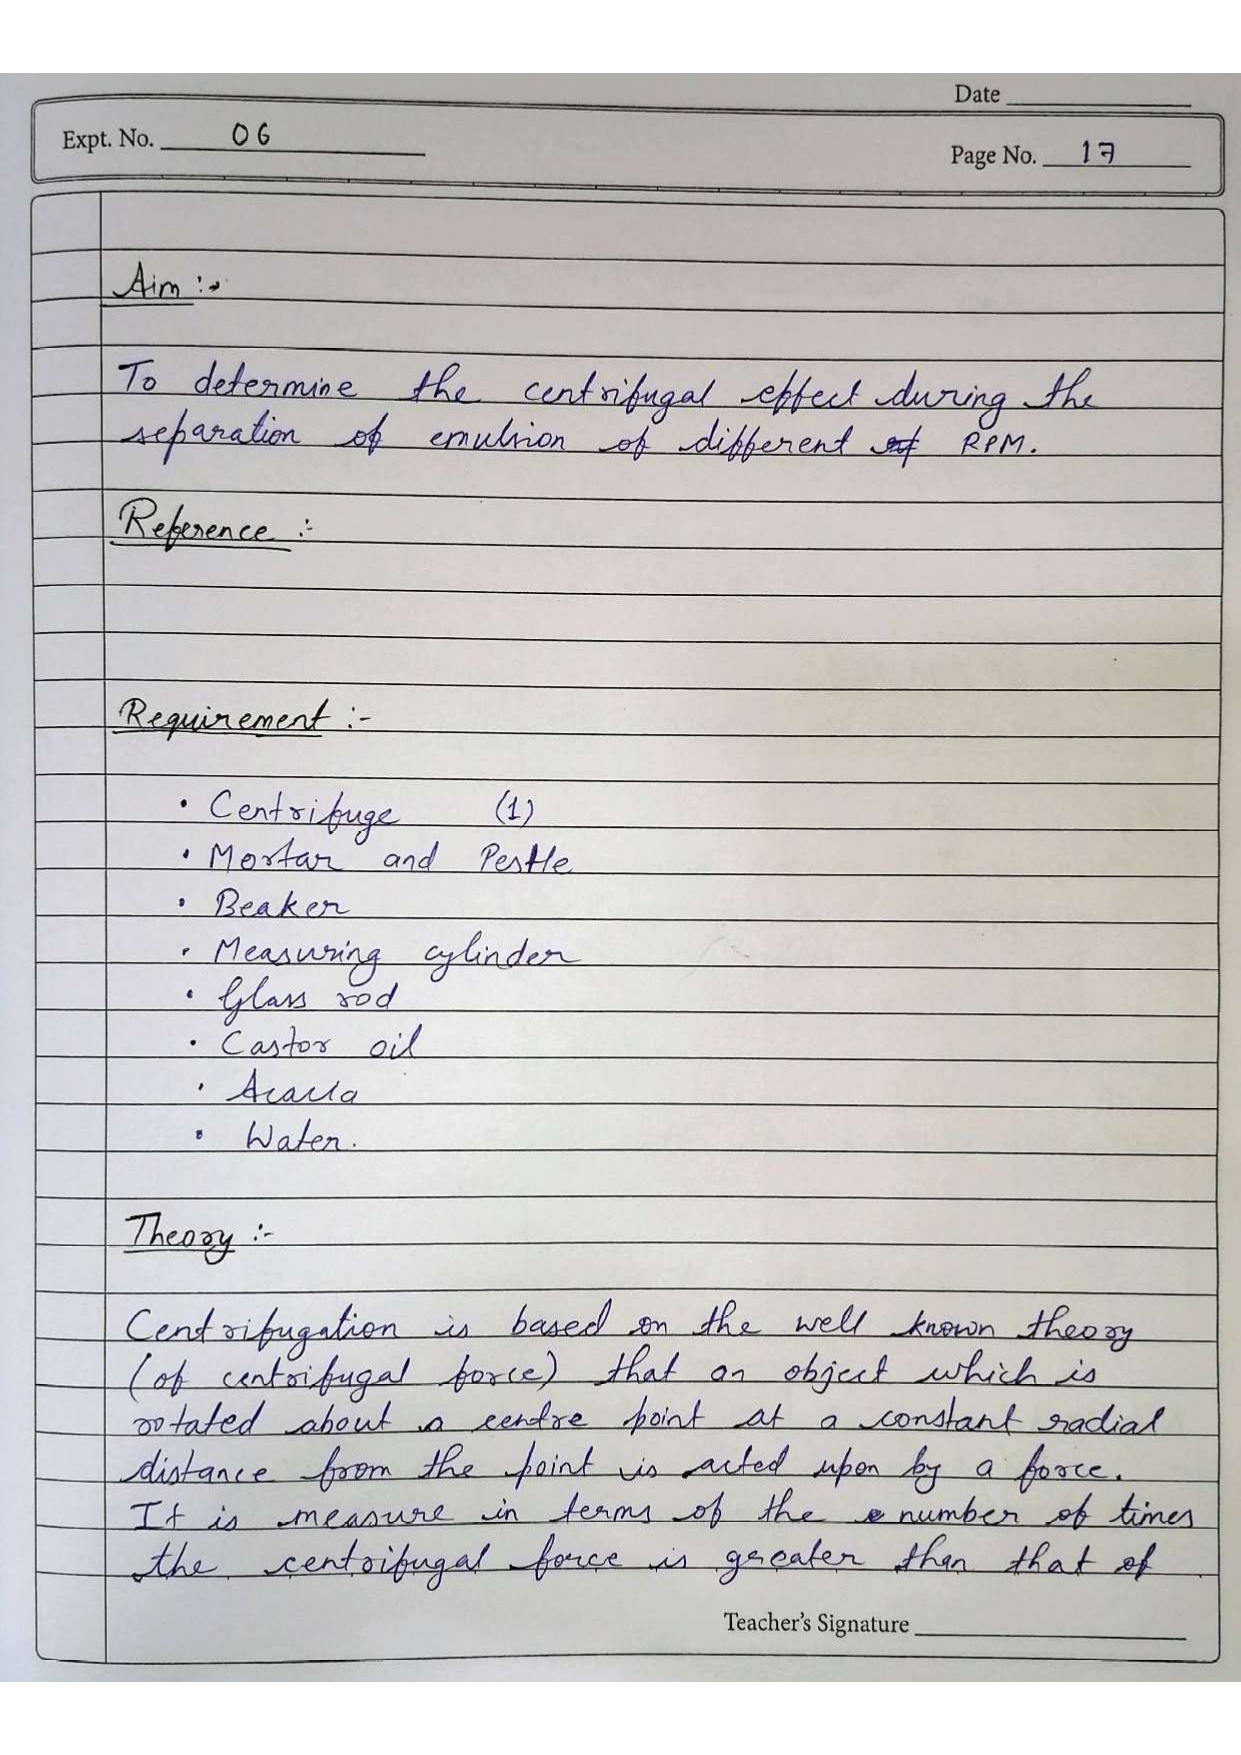 Date
Expt. No. 06
Page No. 17
Aim :-
To determine the centrifugal effect during the
separation of emulsion of different of RPM.
Reference :-
Requirement :-
• Centrifuge (1)
• Mortar and Pestle
• Beaker
• Measuring cylinder
• Glass rod
• Castor oil
• Acacia
• Water.
Theory :-
Centrifugation is based on the well known theory
(of centrifugal force) that an object which is
rotated about a centre point at a constant radial
distance from the point is acted upon by a force.
It is measure in terms of the number of times
the centrifugal force is greater than that of
Teacher's Signature